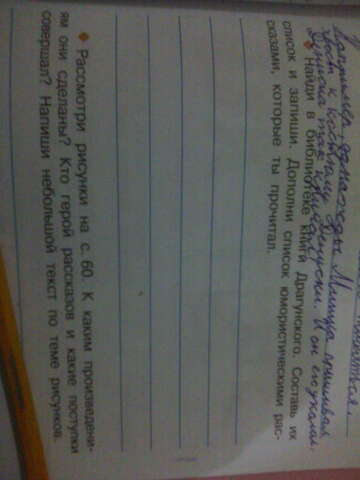 Например, однажды Мишка пришивал
хвост к
◆ Найди в библиотеке книги Драгунского. Составь их
список и запиши. Дополни список юмористическими рас-
сказами, которые ты прочитал.
◆ Рассмотри рисунки на с. 60. К каким произведени-
ям они сделаны? Кто герой рассказов и какие поступки
совершал? Напиши небольшой текст по теме рисунков.